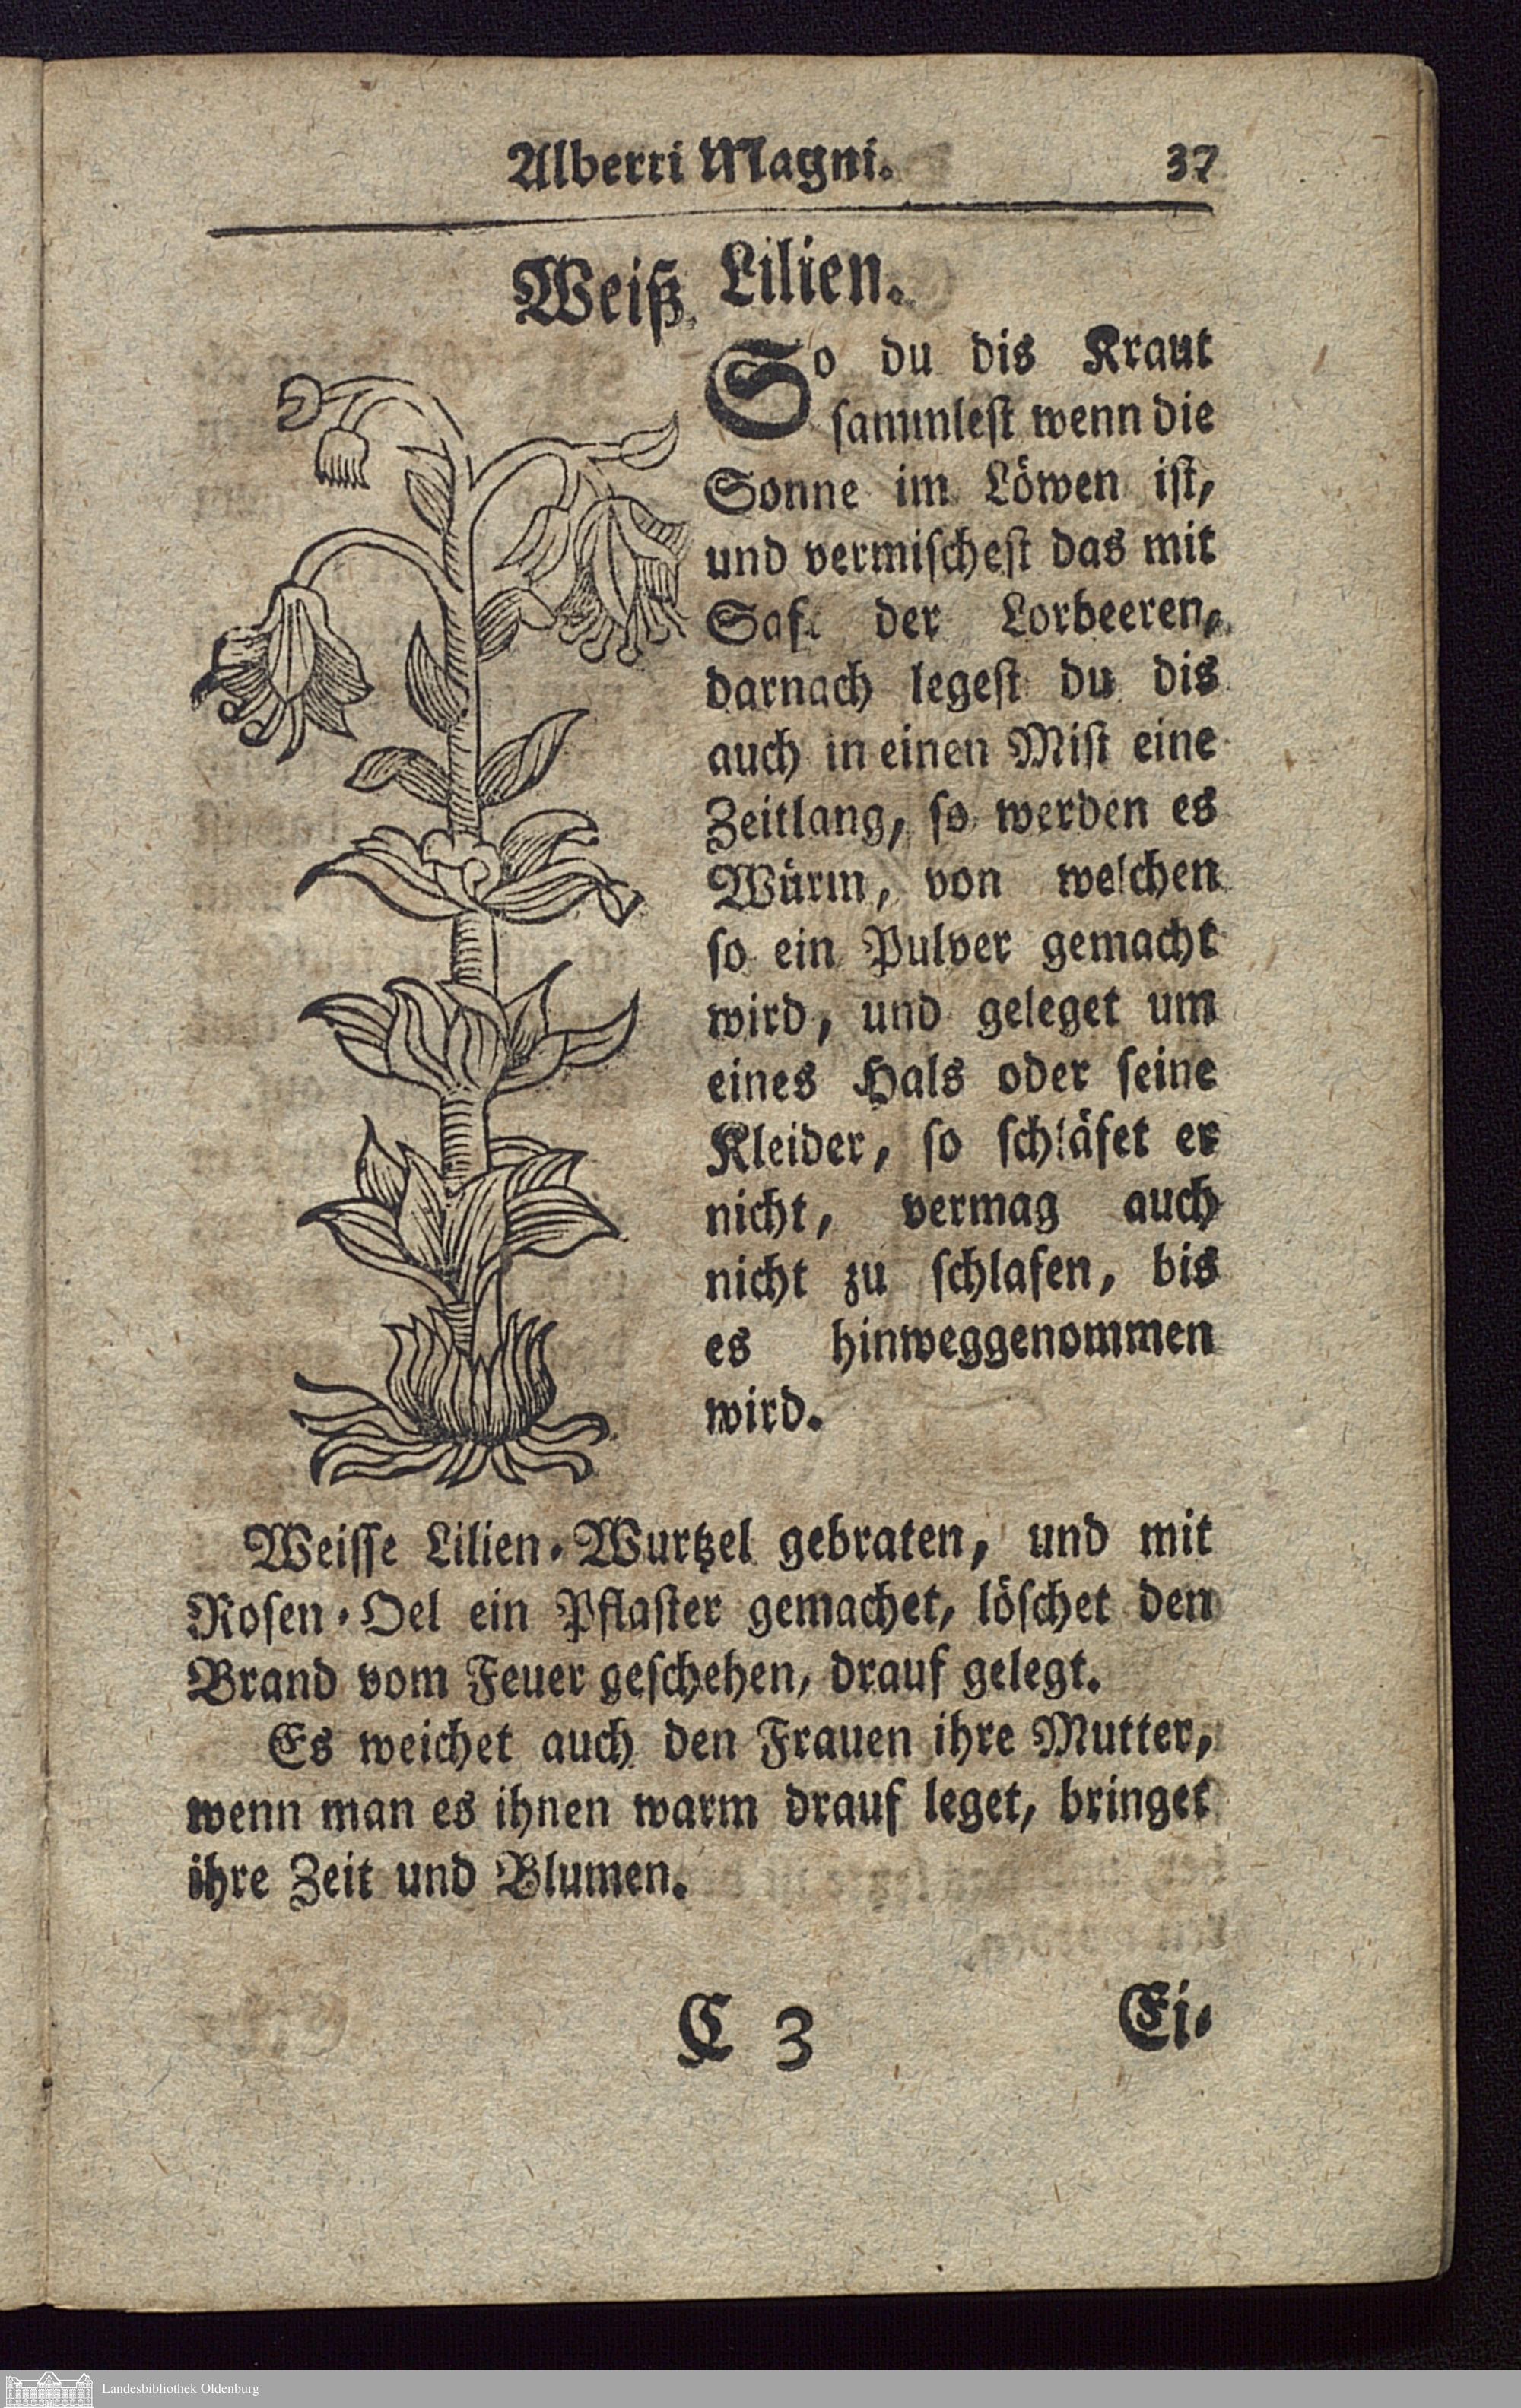 Alberti Magni. 37
Weiß Lilien.
So du dis Kraut
sammlest wenn die
Sonne im Löwen ist,
und vermischest das mit
Saft der Lorbeeren,
darnach legest du dis
auch in einen Mist eine
Zeitlang, so werden es
Würm, von welchen
so ein Pulver gemacht
wird, und geleget um
eines Hals oder seine
Kleider, so schläfet er
nicht, vermag auch
nicht zu schlafen, bis
es hinweggenommen
wird.
Weisse Lilien-Wurtzel gebraten, und mit
Rosen-Oel ein Pflaster gemachet, löschet den
Brand vom Feuer geschehen, drauf gelegt.
Es weichet auch den Frauen ihre Mutter,
wenn man es ihnen warm drauf leget, bringet
ihre Zeit und Blumen.
C 3 Ei-
Landesbibliothek Oldenburg